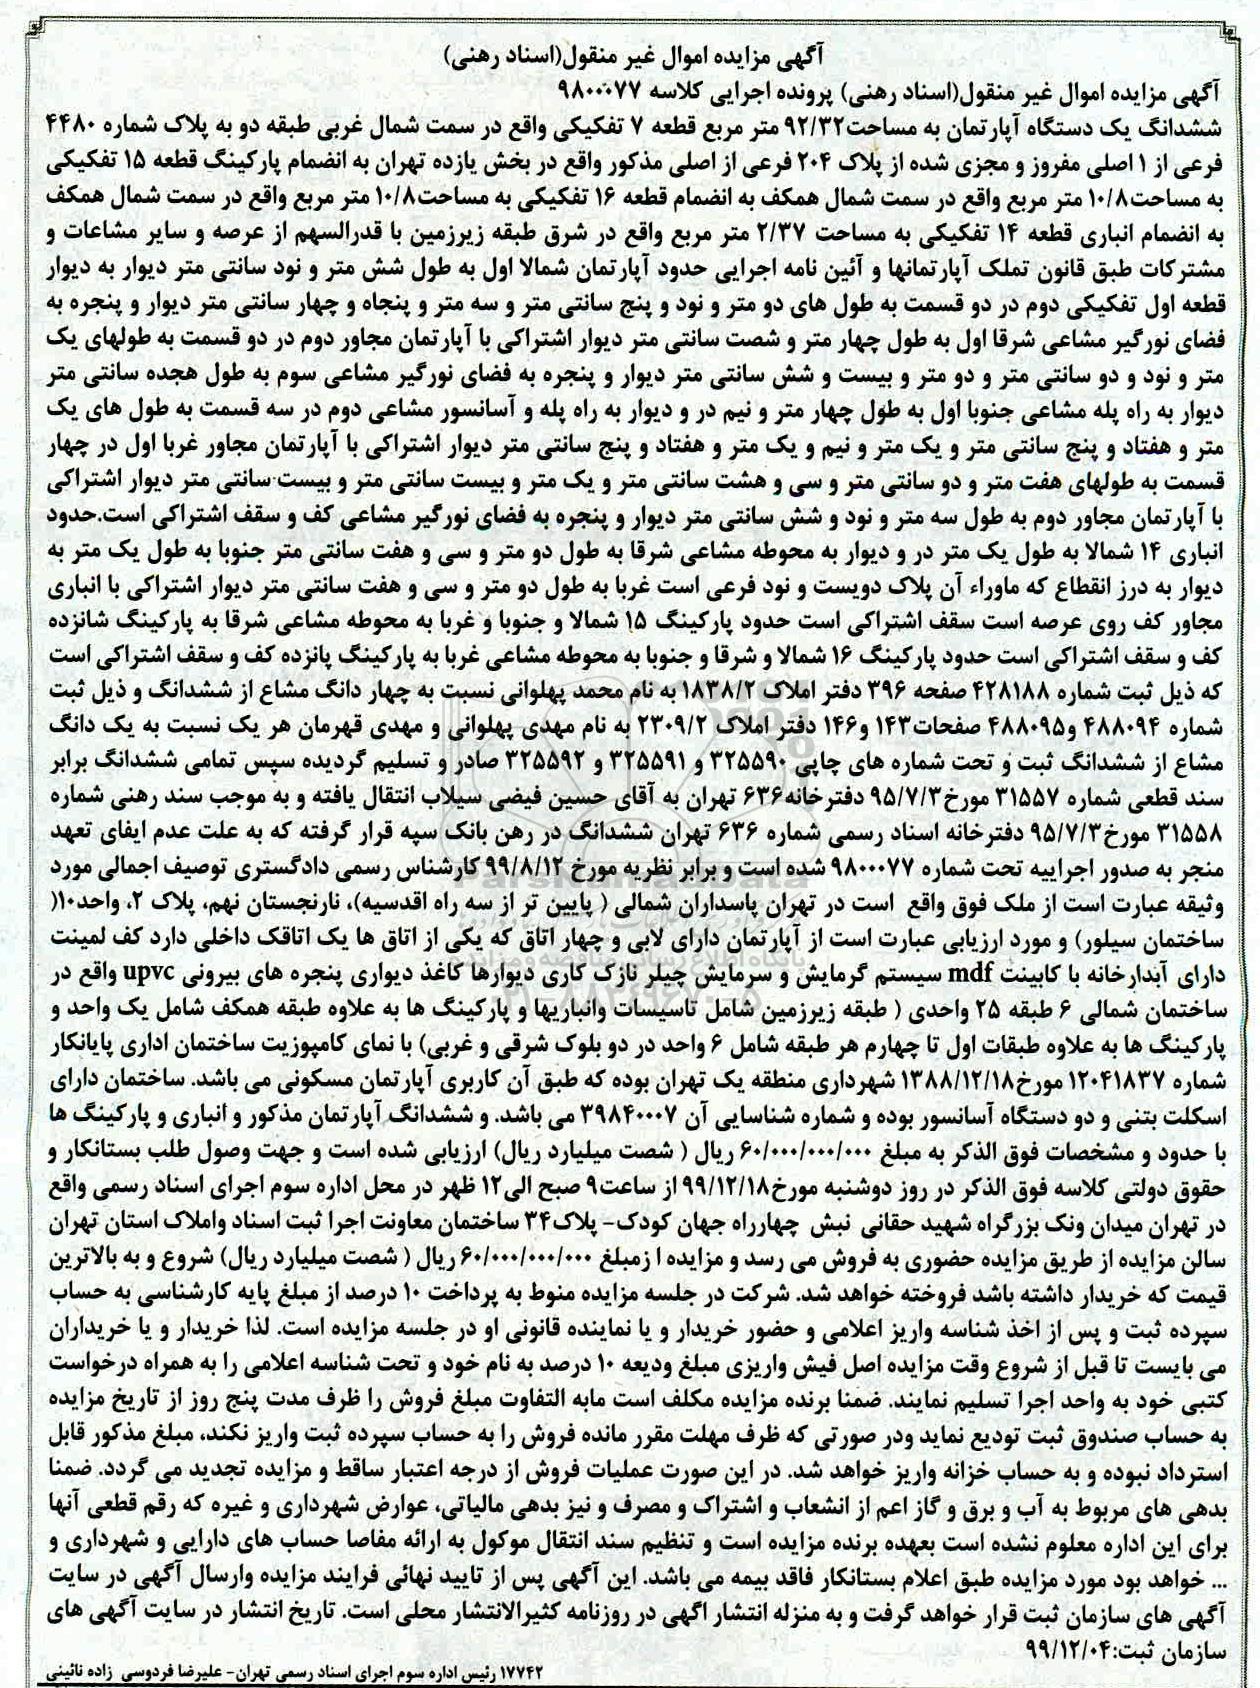 آگهی مزایده اموال غیر منقول(اسناد رهنی)
آگهی مزایده اموال غیر منقول(اسناد رهنی) پرونده اجرایی کلاسه ۹۸۰۰۰۷۷
ششدانگ یک دستگاه آپارتمان به مساحت۹۲/۳۲ متر مربع قطعه ۷ تفکیکی واقع در سمت شمال غربی طبقه دو به پلاک شماره ۴۴۸۰
فرعی از ۱ اصلی مفروز و مجزی شده از پلاک ۲۰۴ فرعی از اصلی مذکور واقع در بخش یازده تهران به انضمام پارکینگ قطعه ۱۵ تفکیکی
به مساحت۱۰/۸ متر مربع واقع در سمت شمال همکف به انضمام قطعه ۱۶ تفکیکی به مساحت۱۰/۸ متر مربع واقع در سمت شمال همکف
به انضمام انباری قطعه ۱۴ تفکیکی به مساحت ۲/۳۷ متر مربع واقع در شرق طبقه زیرزمین با قدرالسهم از عرصه و سایر مشاعات و
مشترکات طبق قانون تملک آپارتمانها و آئین نامه اجرایی حدود آپارتمان شمالا اول به طول شش متر و نود سانتی متر دیوار به دیوار
قطعه اول تفکیکی دوم در دو قسمت به طول های دو متر و نود و پنج سانتی متر و سه متر و پنجاه و چهار سانتی متر دیوار و پنجره به
فضای نورگیر مشاعی شرقا اول به طول چهار متر و شصت سانتی متر دیوار اشتراکی با آپارتمان مجاور دوم در دو قسمت به طولهای یک
متر و نود و دو سانتی متر و دو متر و بیست و شش سانتی متر دیوار و پنجره به فضای نورگیر مشاعی سوم به طول هجده سانتی متر
دیوار به راه پله مشاعی جنوبا اول به طول چهار متر و نیم در و دیوار به راه پله و آسانسور مشاعی دوم در سه قسمت به طول های یک
متر و هفتاد و پنج سانتی متر و یک متر و نیم و یک متر و هفتاد و پنج سانتی متر دیوار اشتراکی با آپارتمان مجاور غربا اول در چهار
قسمت به طولهای هفت متر و دو سانتی متر و سی و هشت سانتی متر و یک متر و بیست سانتی متر و بیست سانتی متر دیوار اشتراکی
با آپارتمان مجاور دوم به طول سه متر و نود و شش سانتی متر دیوار و پنجره به فضای نورگیر مشاعی کف و سقف اشتراکی است.حدود
انباری ۱۴ شمالا به طول یک متر در و دیوار به محوطه مشاعی شرقا به طول دو متر و سی و هفت سانتی متر جنوبا به طول یک متر به
دیوار به درز انقطاع که ماوراء آن پلاک دویست و نود فرعی است غربا به طول دو متر و سی و هفت سانتی متر دیوار اشتراکی با انباری
مجاور کف روی عرصه است سقف اشتراکی است حدود پارکینگ ۱۵ شمالا و جنوبا و غربا به محوطه مشاعی شرقا به پارکینگ شانزده
کف و سقف اشتراکی است حدود پارکینگ ۱۶ شمالا و شرقا و جنوبا به محوطه مشاعی غربا به پارکینگ پانزده کف و سقف اشتراکی است
که ذیل ثبت شماره ۴۲۸۱۸۸ صفحه ۳۹۶ دفتر املاک ۱۸۳۸/۲ به نام محمد پهلوانی نسبت به چهار دانگ مشاع از ششدانگ و ذیل ثبت
شماره ۴۸۸۰۹۴ و۴۸۸۰۹۵ صفحات۱۴۳ و۱۴۶ دفتر املاک ۲۳۰۹/۲ به نام مهدی پهلوانی و مهدی قهرمان هر یک نسبت به یک دانگ
مشاع از ششدانگ ثبت و تحت شماره های چاپی ۳۲۵۵۹۰ و ۳۲۵۵۹۱ و ۳۲۵۵۹۲ صادر و تسلیم گردیده سپس تمامی ششدانگ برابر
سند قطعی شماره ۳۱۵۵۷ مورخ۹۵/۷/۳ دفترخانه۶۳۶ تهران به آقای حسین فیضی سیلاب انتقال یافته و به موجب سند رهنی شماره
۳۱۵۵۸ مورخ۹۵/۷/۳ دفترخانه اسناد رسمی شماره ۶۳۶ تهران ششدانگ در رهن بانک سپه قرار گرفته که به علت عدم ایفای تعهد
منجر به صدور اجراییه تحت شماره ۹۸۰۰۰۷۷ شده است و برابر نظریه مورخ ۹۹/۸/۱۲ کارشناس رسمی دادگستری توصیف اجمالی مورد
وثیقه عبارت است از ملک فوق واقع است در تهران پاسداران شمالی ( پایین تر از سه راه اقدسیه)، نارنجستان نهم، پلاک ۲، واحد۱۰(
ساختمان سیلور) و مورد ارزیابی عبارت است از آپارتمان دارای لابی و چهار اتاق که یکی از اتاق ها یک اتاقک داخلی دارد کف لمینت
دارای آبدارخانه با کابینت mdf سیستم گرمایش و سرمایش چیلر نازک کاری دیوارها کاغذ دیواری پنجره های بیرونی upvc واقع در
ساختمان شمالی ۶ طبقه ۲۵ واحدی ( طبقه زیرزمین شامل تاسیسات وانباریها و پارکینگ ها به علاوه طبقه همکف شامل یک واحد و
پارکینگ ها به علاوه طبقات اول تا چهارم هر طبقه شامل ۶ واحد در دو بلوک شرقی و غربی) با نمای کامپوزیت ساختمان اداری پایانکار
شماره ۱۲۰۴۱۸۳۷ مورخ۱۳۸۸/۱۲/۱۸ شهرداری منطقه یک تهران بوده که طبق آن کاربری آپارتمان مسکونی می باشد. ساختمان دارای
اسکلت بتنی و دو دستگاه آسانسور بوده و شماره شناسایی آن ۳۹۸۴۰۰۰۷ می باشد. و ششدانگ آپارتمان مذکور و انباری و پارکینگ ها
با حدود و مشخصات فوق الذکر به مبلغ ۶۰/۰۰۰/۰۰۰/۰۰۰ ریال ( شصت میلیارد ریال) ارزیابی شده است و جهت وصول طلب بستانکار و
حقوق دولتی کلاسه فوق الذکر در روز دوشنبه مورخ۹۹/۱۲/۱۸ از ساعت۹ صبح الی۱۲ ظهر در محل اداره سوم اجرای اسناد رسمی واقع
در تهران میدان ونک بزرگراه شهید حقانی نبش چهارراه جهان کودک- پلاک۳۴ ساختمان معاونت اجرا ثبت اسناد واملاک استان تهران
سالن مزایده از طریق مزایده حضوری به فروش می رسد و مزایده ا زمبلغ ۶۰/۰۰۰/۰۰۰/۰۰۰ ریال ( شصت میلیارد ریال) شروع و به بالاترین
قیمت که خریدار داشته باشد فروخته خواهد شد. شرکت در جلسه مزایده منوط به پرداخت ۱۰ درصد از مبلغ پایه کارشناسی به حساب
سپرده ثبت و پس از اخذ شناسه واریز اعلامی و حضور خریدار و یا نماینده قانونی او در جلسه مزایده است. لذا خریدار و یا خریداران
می بایست تا قبل از شروع وقت مزایده اصل فیش واریزی مبلغ ودیعه ۱۰ درصد به نام خود و تحت شناسه اعلامی را به همراه درخواست
کتبی خود به واحد اجرا تسلیم نمایند. ضمنا برنده مزایده مکلف است مابه التفاوت مبلغ فروش را ظرف مدت پنج روز از تاریخ مزایده
به حساب صندوق ثبت تودیع نماید ودر صورتی که ظرف مهلت مقرر مانده فروش را به حساب سپرده ثبت واریز نکند، مبلغ مذکور قابل
استرداد نبوده و به حساب خزانه واریز خواهد شد. در این صورت عملیات فروش از درجه اعتبار ساقط و مزایده تجدید می گردد. ضمنا
بدهی های مربوط به آب و برق و گاز اعم از انشعاب و اشتراک و مصرف و نیز بدهی مالیاتی، عوارض شهرداری و غیره که رقم قطعی آنها
برای این اداره معلوم نشده است بعهده برنده مزایده است و تنظیم سند انتقال موکول به ارائه مفاصا حساب های دارایی و شهرداری و
... خواهد بود مورد مزایده طبق اعلام بستانکار فاقد بیمه می باشد. این آگهی پس از تایید نهائی فرایند مزایده وارسال آگهی در سایت
آگهی های سازمان ثبت قرار خواهد گرفت و به منزله انتشار اگهی در روزنامه کثیرالانتشار محلی است. تاریخ انتشار در سایت آگهی های
سازمان ثبت:۹۹/۱۲/۰۴
۱۷۷۴۲ رئیس اداره سوم اجرای اسناد رسمی تهران- علیرضا فردوسی زاده نائینی
ParsNamadData
پایگاه اطلاع رسانی مناقصه و مزایده